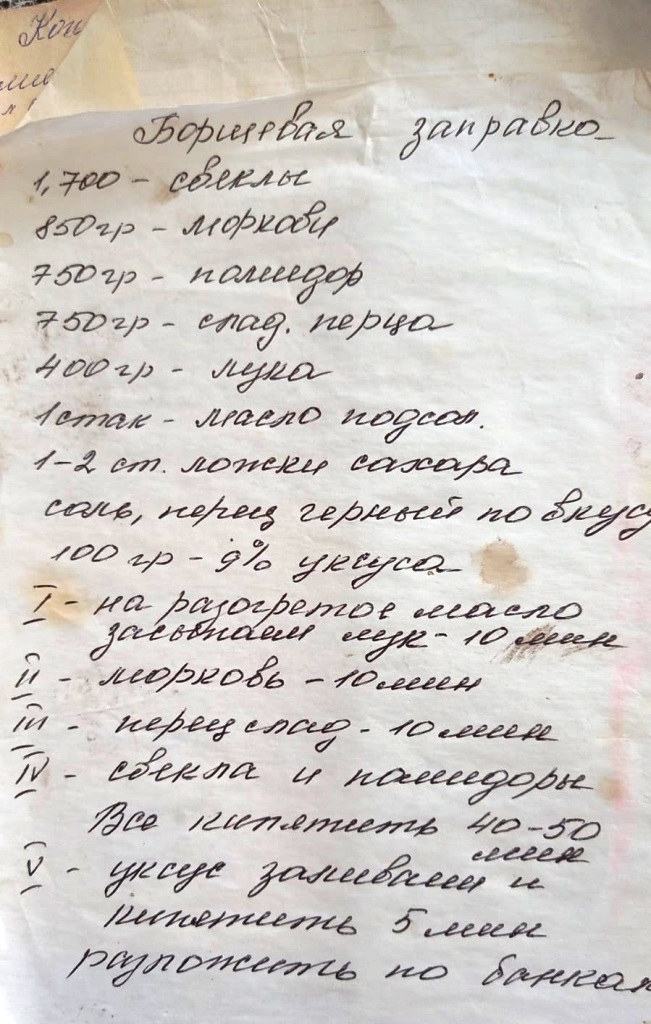 Ког
Борщевая заправка
1,700 - свеклы
850 гр - моркови
750 гр - помидор
750 гр - слад. перца
400 гр - лука
1 стак - масло подсол.
1-2 ст. ложки сахара
соль, перец черный по вкусу
100 гр - 9% уксуса
I - на разогретое масло
засыпаем лук - 10 мин
II - морковь - 10 мин
III - перец слад - 10 мин
IV - свекла и помидоры
Все кипятить 40-50
мин
V - уксус заливаем и
кипятить 5 мин
разложить по банкам